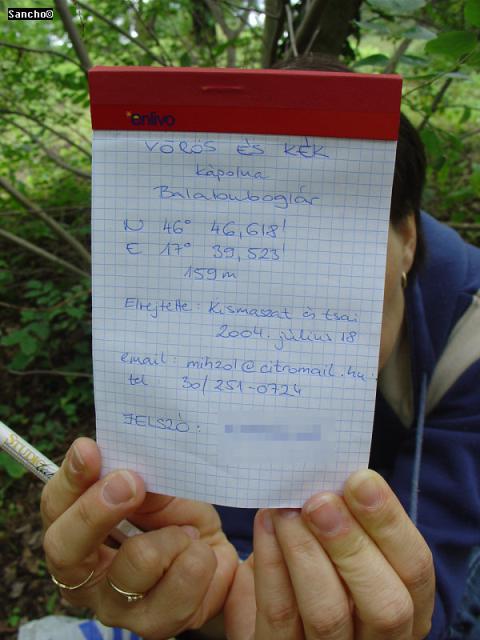 Sancho©
enlivo
VÖRÖS ÉS KÉK
kápolna
Balatonboglár
N 46° 46,618'
E 17° 39,523'
159m
Elrejtette: Kismaszat és tsai
2004. július 18
email: mihzol@citromail.hu
tel 30/251-0724
JELSZÓ: